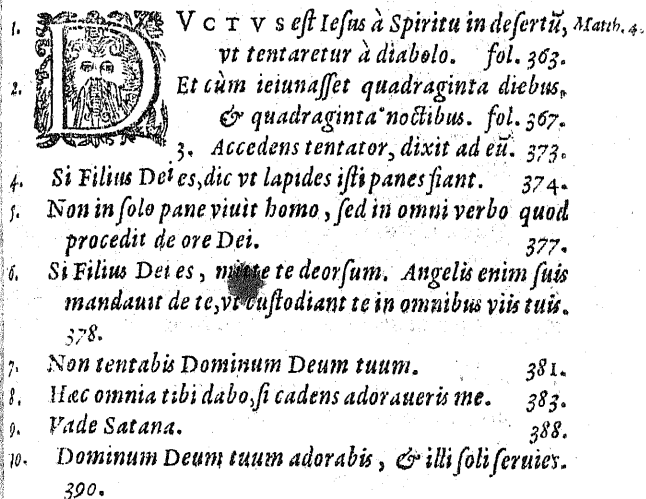 1. DVCTVS est Iesus à Spiritu in desertũ, Matth. 4.
vt tentaretur à diabolo. fol. 363.
2. Et cùm ieiunasset quadraginta diebus,
& quadraginta noctibus. fol. 367.
3. Accedens tentator, dixit ad eũ. 373.
4. Si Filius Dei es, dic vt lapides isti panes fiant. 374.
5. Non in solo pane viuit homo, sed in omni verbo quod
procedit de ore Dei. 377.
6. Si Filius Dei es, mitte te deorsum. Angelis enim suis
mandauit de te, vt custodiant te in omnibus viis tuis.
378.
7. Non tentabis Dominum Deum tuum. 381.
8. Hæc omnia tibi dabo, si cadens adoraueris me. 383.
9. Vade Satana. 388.
10. Dominum Deum tuum adorabis, & illi soli seruies.
390.